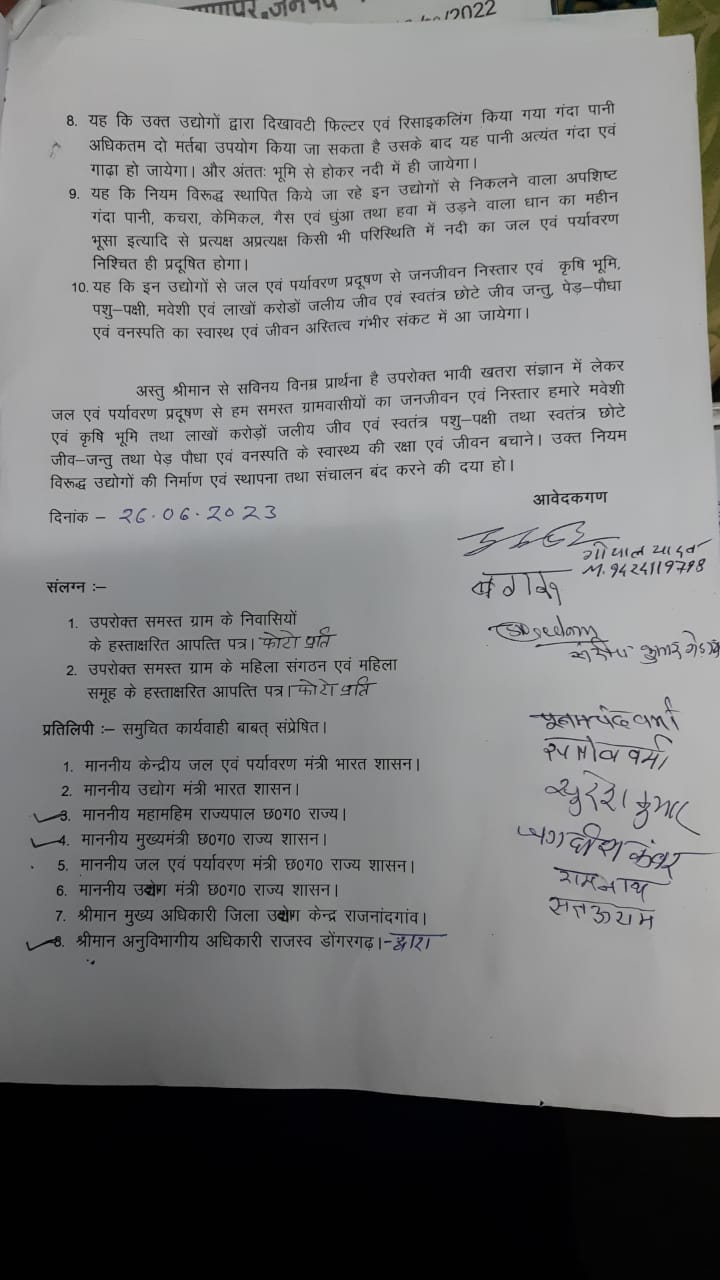 /2022
8. यह कि उक्त उद्योगों द्वारा दिखावटी फिल्टर एवं रिसाइकलिंग किया गया गंदा पानी
अधिकतम दो मर्तबा उपयोग किया जा सकता है उसके बाद यह पानी अत्यंत गंदा एवं
गाढ़ा हो जायेगा। और अंततः भूमि से होकर नदी में ही जायेगा।
9. यह कि नियम विरूद्ध स्थापित किये जा रहे इन उद्योगों से निकलने वाला अपशिष्ट
गंदा पानी, कचरा, केमिकल, गैस एवं धुंआ तथा हवा में उड़ने वाला धान का महीन
भूसा इत्यादि से प्रत्यक्ष अप्रत्यक्ष किसी भी परिस्थिति में नदी का जल एवं पर्यावरण
निश्चित ही प्रदूषित होगा।
10. यह कि इन उद्योगों से जल एवं पर्यावरण प्रदूषण से जनजीवन निस्तार एवं कृषि भूमि,
पशु–पक्षी, मवेशी एवं लाखों करोडों जलीय जीव एवं स्वतंत्र छोटे जीव जन्तु, पेड़–पौधा
एवं वनस्पति का स्वास्थ एवं जीवन अस्तित्व गंभीर संकट में आ जायेगा।
अस्तु श्रीमान से सविनय विनम्र प्रार्थना है उपरोक्त भावी खतरा संज्ञान में लेकर
जल एवं पर्यावरण प्रदूषण से हम समस्त ग्रामवासीयों का जनजीवन एवं निस्तार हमारे मवेशी
एवं कृषि भूमि तथा लाखों करोड़ों जलीय जीव एवं स्वतंत्र पशु–पक्षी तथा स्वतंत्र छोटे
जीव–जन्तु तथा पेड़ पौधा एवं वनस्पति के स्वास्थ्य की रक्षा एवं जीवन बचाने। उक्त नियम
विरूद्ध उद्योगों की निर्माण एवं स्थापना तथा संचालन बंद करने की दया हो।
आवेदकगण
दिनांक – 26.06.2023
गोपाल यादव
M. 9424119798
संलग्न :–
1. उपरोक्त समस्त ग्राम के निवासियों
के हस्ताक्षरित आपत्ति पत्र। फोटो प्रति
2. उपरोक्त समस्त ग्राम के महिला संगठन एवं महिला
समूह के हस्ताक्षरित आपत्ति पत्र। फोटो प्रति
कुमार
वर्मा
प्रतिलिपी :– समुचित कार्यवाही बाबत् संप्रेषित।
वर्मा
1. माननीय केन्द्रीय जल एवं पर्यावरण मंत्री भारत शासन।
2. माननीय उद्योग मंत्री भारत शासन।
3. माननीय महामहिम राज्यपाल छ0ग0 राज्य।
सुरेश कुमार
4. माननीय मुख्यमंत्री छ0ग0 राज्य शासन।
5. माननीय जल एवं पर्यावरण मंत्री छ0ग0 राज्य शासन।
जगदीश कंवर
6. माननीय उद्योग मंत्री छ0ग0 राज्य शासन।
रामनाथ
7. श्रीमान मुख्य अधिकारी जिला उद्योग केन्द्र राजनांदगांव।
8. श्रीमान अनुविभागीय अधिकारी राजस्व डोंगरगढ़।-द्वारा